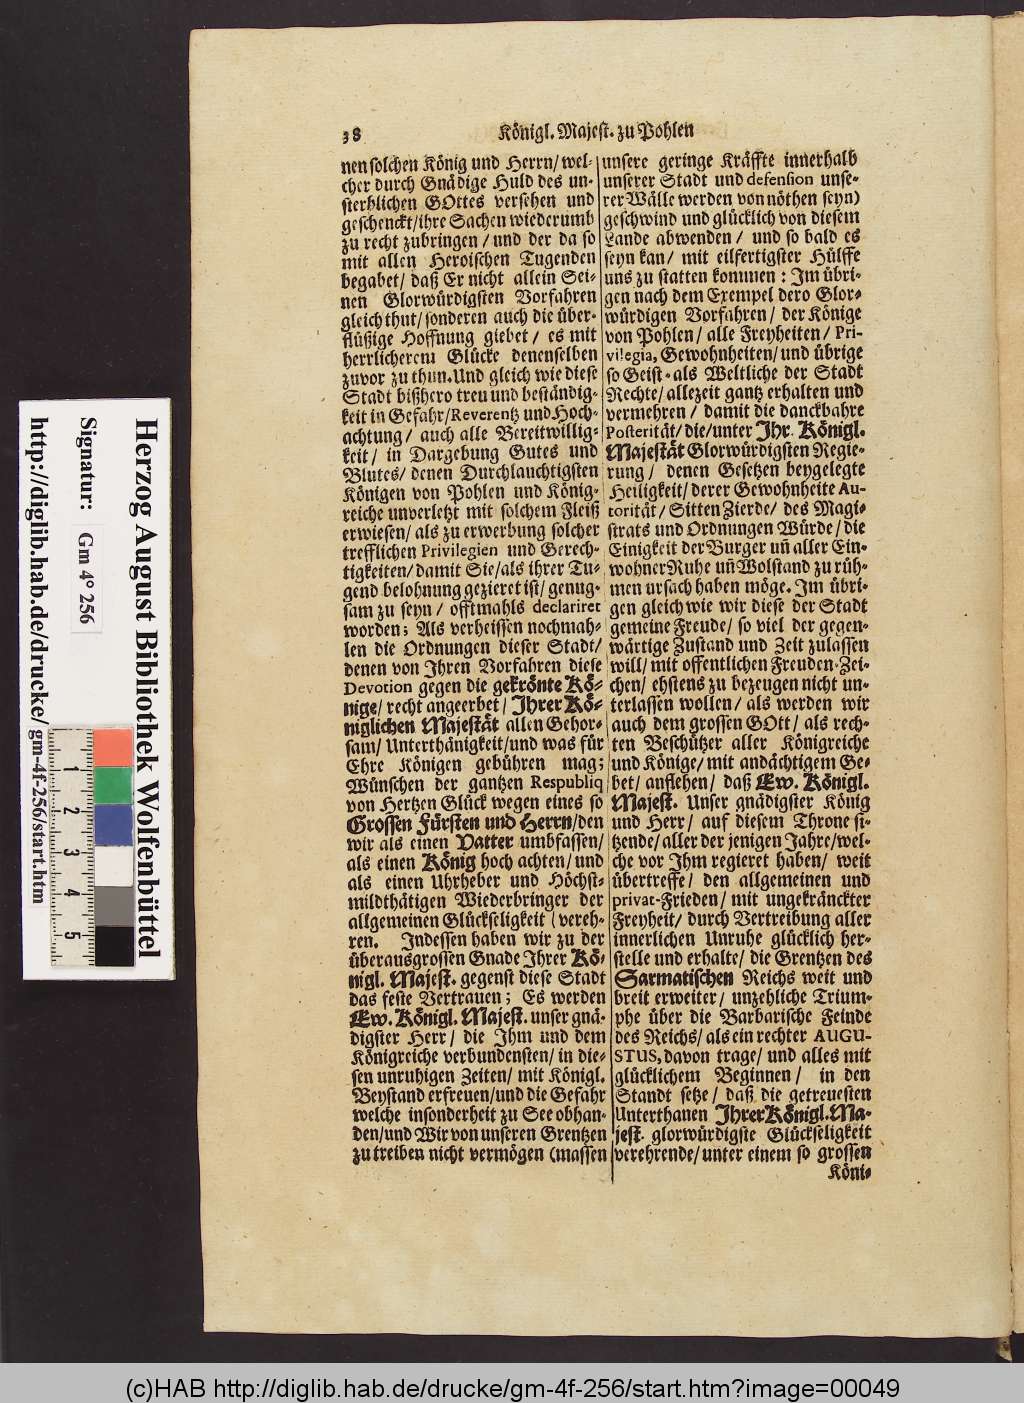 38
Königl. Majest. zu Pohlen
nen solchen König und Herrn/ wel-
cher durch Gnädige Huld des un-
sterblichen GOttes versehen und
geschenckt/ ihre Sachen wiederumb
zu recht zubringen / und der da so
mit allen Heroischen Tugenden
begabet / daß Er nicht allein Sei-
nen Glorwürdigsten Vorfahren
gleich thut/ sonderen auch die über-
flüßige Hoffnung giebet / es mit
herrlicherem Glücke denenselben
zuvor zu thun. Und gleich wie diese
Stadt bißhero treu und beständig-
keit in Gefahr/ Reverentz und Hoch-
achtung / auch alle Bereitwillig-
keit / in Dargebung Gutes und
Blutes/ denen Durchlauchtigsten
Königen von Pohlen und König-
reiche unverletzt mit solchem Fleiß
erwiesen/ als zu erwerbung solcher
trefflichen Privilegien und Gerech-
tigkeiten/ damit Sie/ als ihrer Tu-
gend belohnung gezieret ist/ genug-
sam zu seyn / offtmahls declariret
worden; Als verheissen nochmah-
len die Ordnungen dieser Stadt/
denen von Ihren Vorfahren diese
Devotion gegen die gekrönte Kö-
nige/ recht angeerbet/ Ihrer Kö-
niglichen Majestät allen Gehor-
sam/ Unterthänigkeit/ und was für
Ehre Königen gebühren mag;
Wünschen der gantzen Respubliq
von Hertzen Glück wegen eines so
Grossen Fürsten und Herrn/ den
wir als einen Vatter umbfassen/
als einen König hoch achten/ und
als einen Uhrheber und Höchst-
mildthätigen Wiederbringer der
allgemeinen Glückseligkeit (vereh-
ren. Indessen haben wir zu der
überausgrossen Gnade Ihrer Kö-
nigl. Majest. gegenst diese Stadt
das feste Vertrauen; Es werden
Ew. Königl. Majest. unser gnä-
digster Herr/ die Ihm und dem
Königreiche verbundensten/ in die-
sen unruhigen Zeiten/ mit Königl.
Beystand erfreuen/ und die Gefahr
welche insonderheit zu See obhan-
den/ und Wir von unseren Grentzen
zu treiben nicht vermögen (massen
unsere geringe Kräffte innerhalb
unserer Stadt und defension unse-
rer Wälle werden von nöthen seyn)
geschwind und glücklich von diesem
Lande abwenden/ und so bald es
seyn kan/ mit eilfertigster Hülffe
uns zu statten kommen: Im übri-
gen nach dem Exempel dero Glor-
würdigen Vorfahren/ der Könige
von Pohlen/ alle Freyheiten/ Pri-
vilegia, Gewohnheiten/ und übrige
so Geist- als Weltliche der Stadt
Rechte/ allezeit gantz erhalten und
vermehren / damit die danckbahre
Posterität/ die/ unter Ihr. Königl.
Majestät Glorwürdigsten Regie-
rung/ denen Gesetzen beygelegte
Heiligkeit/ derer Gewohnheite Au-
torität/ Sitten Zierde/ des Magi-
strats und Ordnungen Würde/ die
Einigkeit der Burger uñ aller Ein-
wohner Ruhe uñ Wolstand zu rüh-
men ursach haben möge. Im übri-
gen gleich wie wir diese der Stadt
gemeine Freude/ so viel der gegen-
wärtige Zustand und Zeit zulassen
will/ mit offentlichen Freuden-Zei-
chen/ ehstens zu bezeugen nicht un-
terlassen wollen/ als werden wir
auch dem grossen GOtt/ als rech-
ten Beschützer aller Königreiche
und Könige/ mit andächtigem Ge-
bet/ anflehen/ daß Ew. Königl.
Majest. Unser gnädigster König
und Herr/ auf diesem Throne si-
tzende/ aller der jenigen Jahre/ wel-
che vor Ihm regieret haben/ weit
übertreffe/ den allgemeinen und
privat-Frieden/ mit ungekränckter
Freyheit/ durch Vertreibung aller
innerlichen Unruhe glücklich her-
stelle und erhalte/ die Grentzen des
Sarmatischen Reichs weit und
breit erweiter/ unzehliche Trium-
phe über die Barbarische Feinde
des Reichs/ als ein rechter AUGU-
STUS, davon trage/ und alles mit
glücklichem Beginnen/ in den
Standt setze/ daß die getreuesten
Unterthanen Ihrer Königl. Ma-
jest. glorwürdigste Glückseligkeit
verehrende/ unter einem so grossen
Köni-
Herzog August Bibliothek Wolfenbüttel
Signatur: Gm 4° 256
http://diglib.hab.de/drucke/gm-4f-256/start.htm
1
2
3
4
5
(c)HAB http://diglib.hab.de/drucke/gm-4f-256/start.htm?image=00049